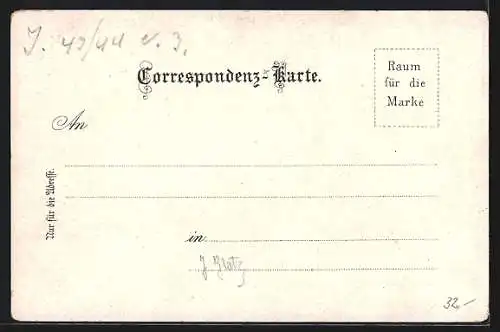 J. 43/44 v. 3.
Correspondenz-Karte.
Raum
für die
Marke
An
Nur für die Adresse.
in
32.-